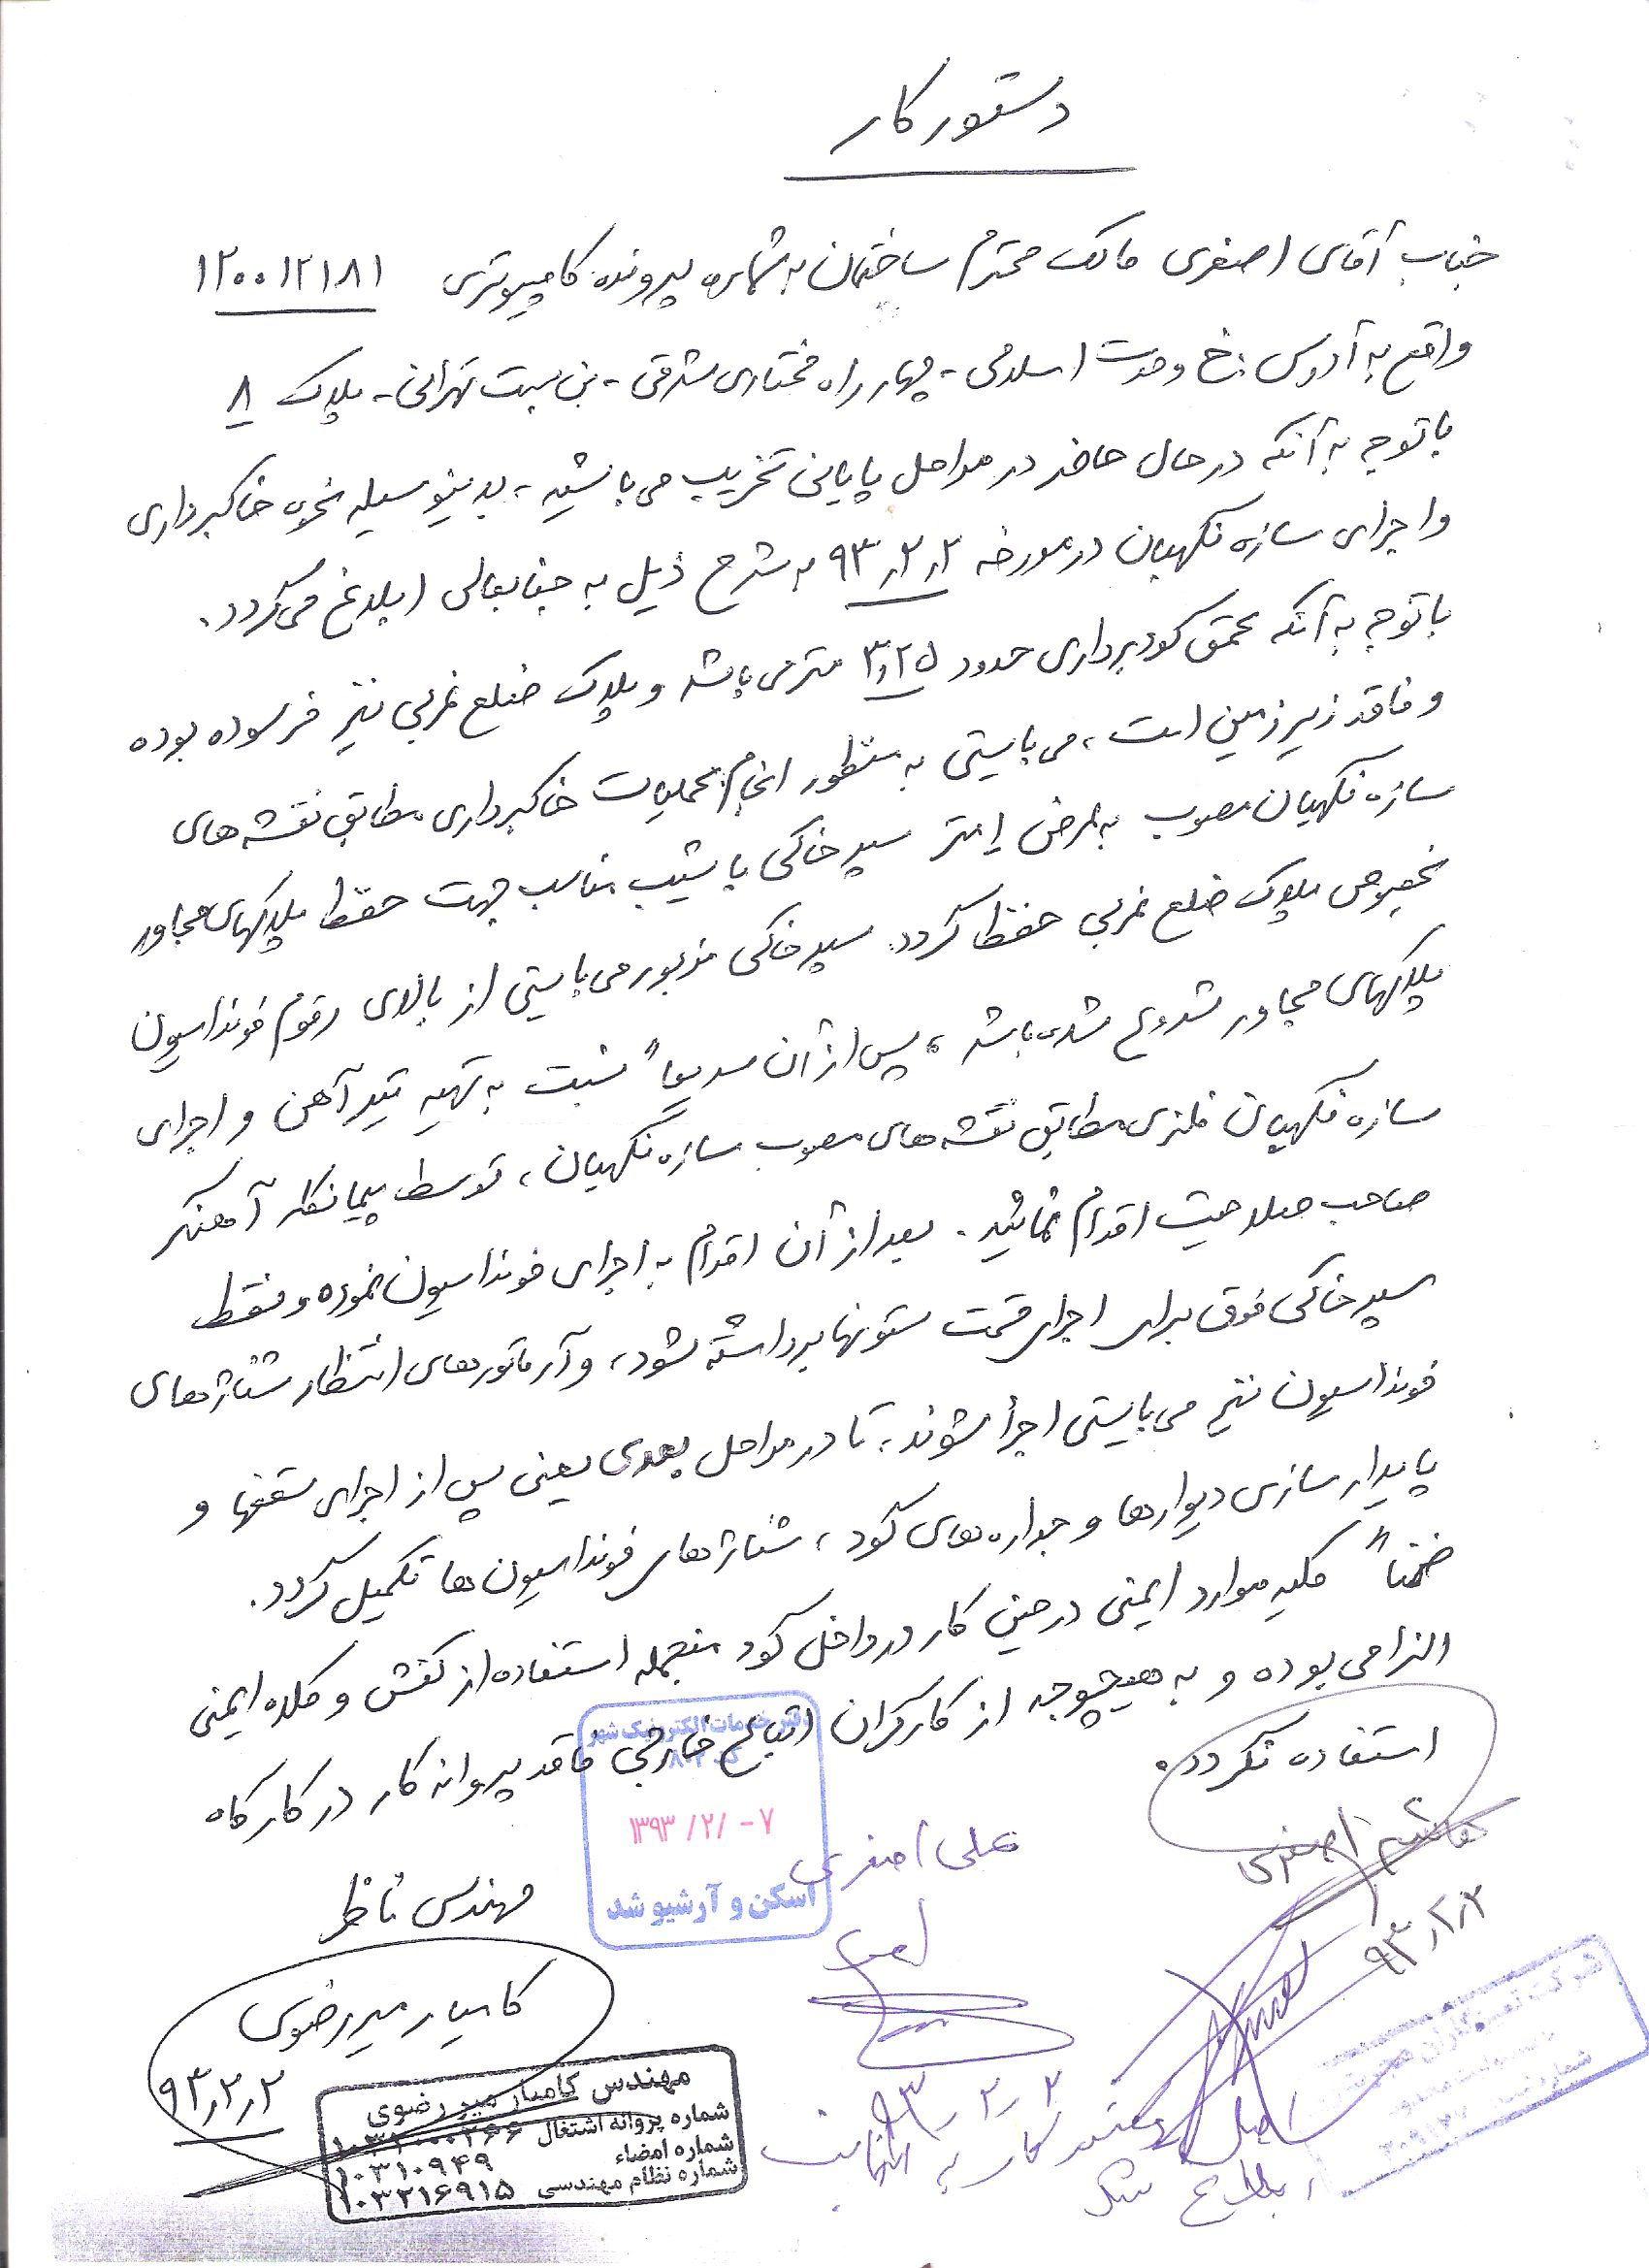 دستور کار
جناب آقای اصغری مالک محترم ساختمان به شماره پرونده کامپیوتری ۱۲۰۰۱۲۱۸۱
واقع به آدرس: خ وحدت اسلامی - چهار راه مختاری شرقی - بن بست تهرانی - پلاک ۸
با توجه به آنکه در حال حاضر در مراحل پایانی تخریب می باشید، بدینوسیله نحوه خاکبرداری
و اجرای سازه نگهبان در مورخه ۹۳٫۲٫۲ به شرح ذیل به جنابعالی ابلاغ می گردد.
با توجه به آنکه عمق گودبرداری حدود ۳٫۲۵ متر می باشد و پلاک ضلع غربی نیز فرسوده بوده
و فاقد زیرزمین است، می بایستی به منظور انجام عملیات خاکبرداری مطابق نقشه های
سازه نگهبان مصوب به عرض ۱ متر سپر خاکی با شیب مناسب جهت حفظ پلاکهای مجاور
بخصوص پلاک ضلع غربی حفظ گردد. سپر خاکی مزبور می بایستی از بالای رقوم فونداسیون
پلاکهای مجاور شروع شده باشد، پس از آن سریعاً نسبت به تهیه تیرآهن و اجرای
سازه نگهبان فلزی مطابق نقشه های مصوب سازه نگهبان، توسط پیمانکار آهنگر
صاحب صلاحیت اقدام نمائید. بعد از آن اقدام به اجرای فونداسیون نموده و فقط
سپر خاکی فوق برای اجرای قسمت ستونها برداشته شود، و آرماتورهای انتظار شناژهای
فونداسیون نیز می بایستی اجرا شوند، تا در مراحل بعدی یعنی پس از اجرای سقفها و
پایدار سازی دیوارها و جداره های گود، شناژهای فونداسیون ها تکمیل گردد.
ضمناً کلیه موارد ایمنی در حین کار در داخل گود منجمله استفاده از کفش و کلاه ایمنی
الزامی بوده و به هیچوجه از کارگران اتباع خارجی فاقد پروانه کار در کارگاه
استفاده نگردد.
دفتر خدمات الکترونیک شهر
۱۳۹۳/۲/-۷
اسکن و آرشیو شد
هاشم اصغری
۹۳٫۲٫۲
علی اصغری
۹۳-۲-۲
مهندس ناظر
کامیار میررضوی
۹۳٫۲٫۲
مهندس کامیار میررضوی
شماره پروانه اشتغال ۱۰۳۱۰۰۰۲۶۶
شماره امضاء ۱۰۳۱۰۹۴۹
شماره نظام مهندسی ۱۰۳۲۱۶۹۱۵
اصل دستور کار به
ابلاغ شد